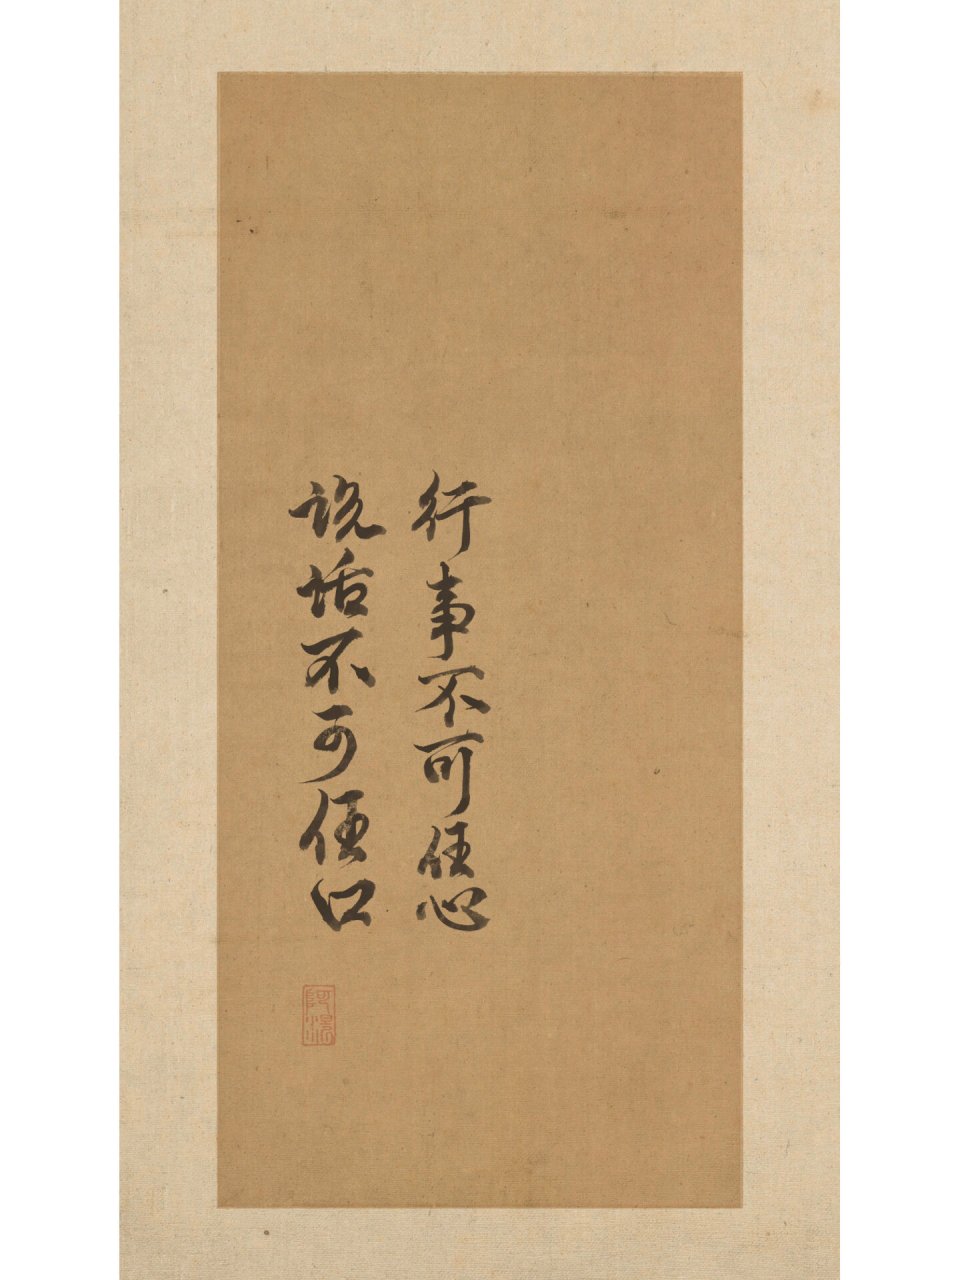 行事不可任心
説話不可任口